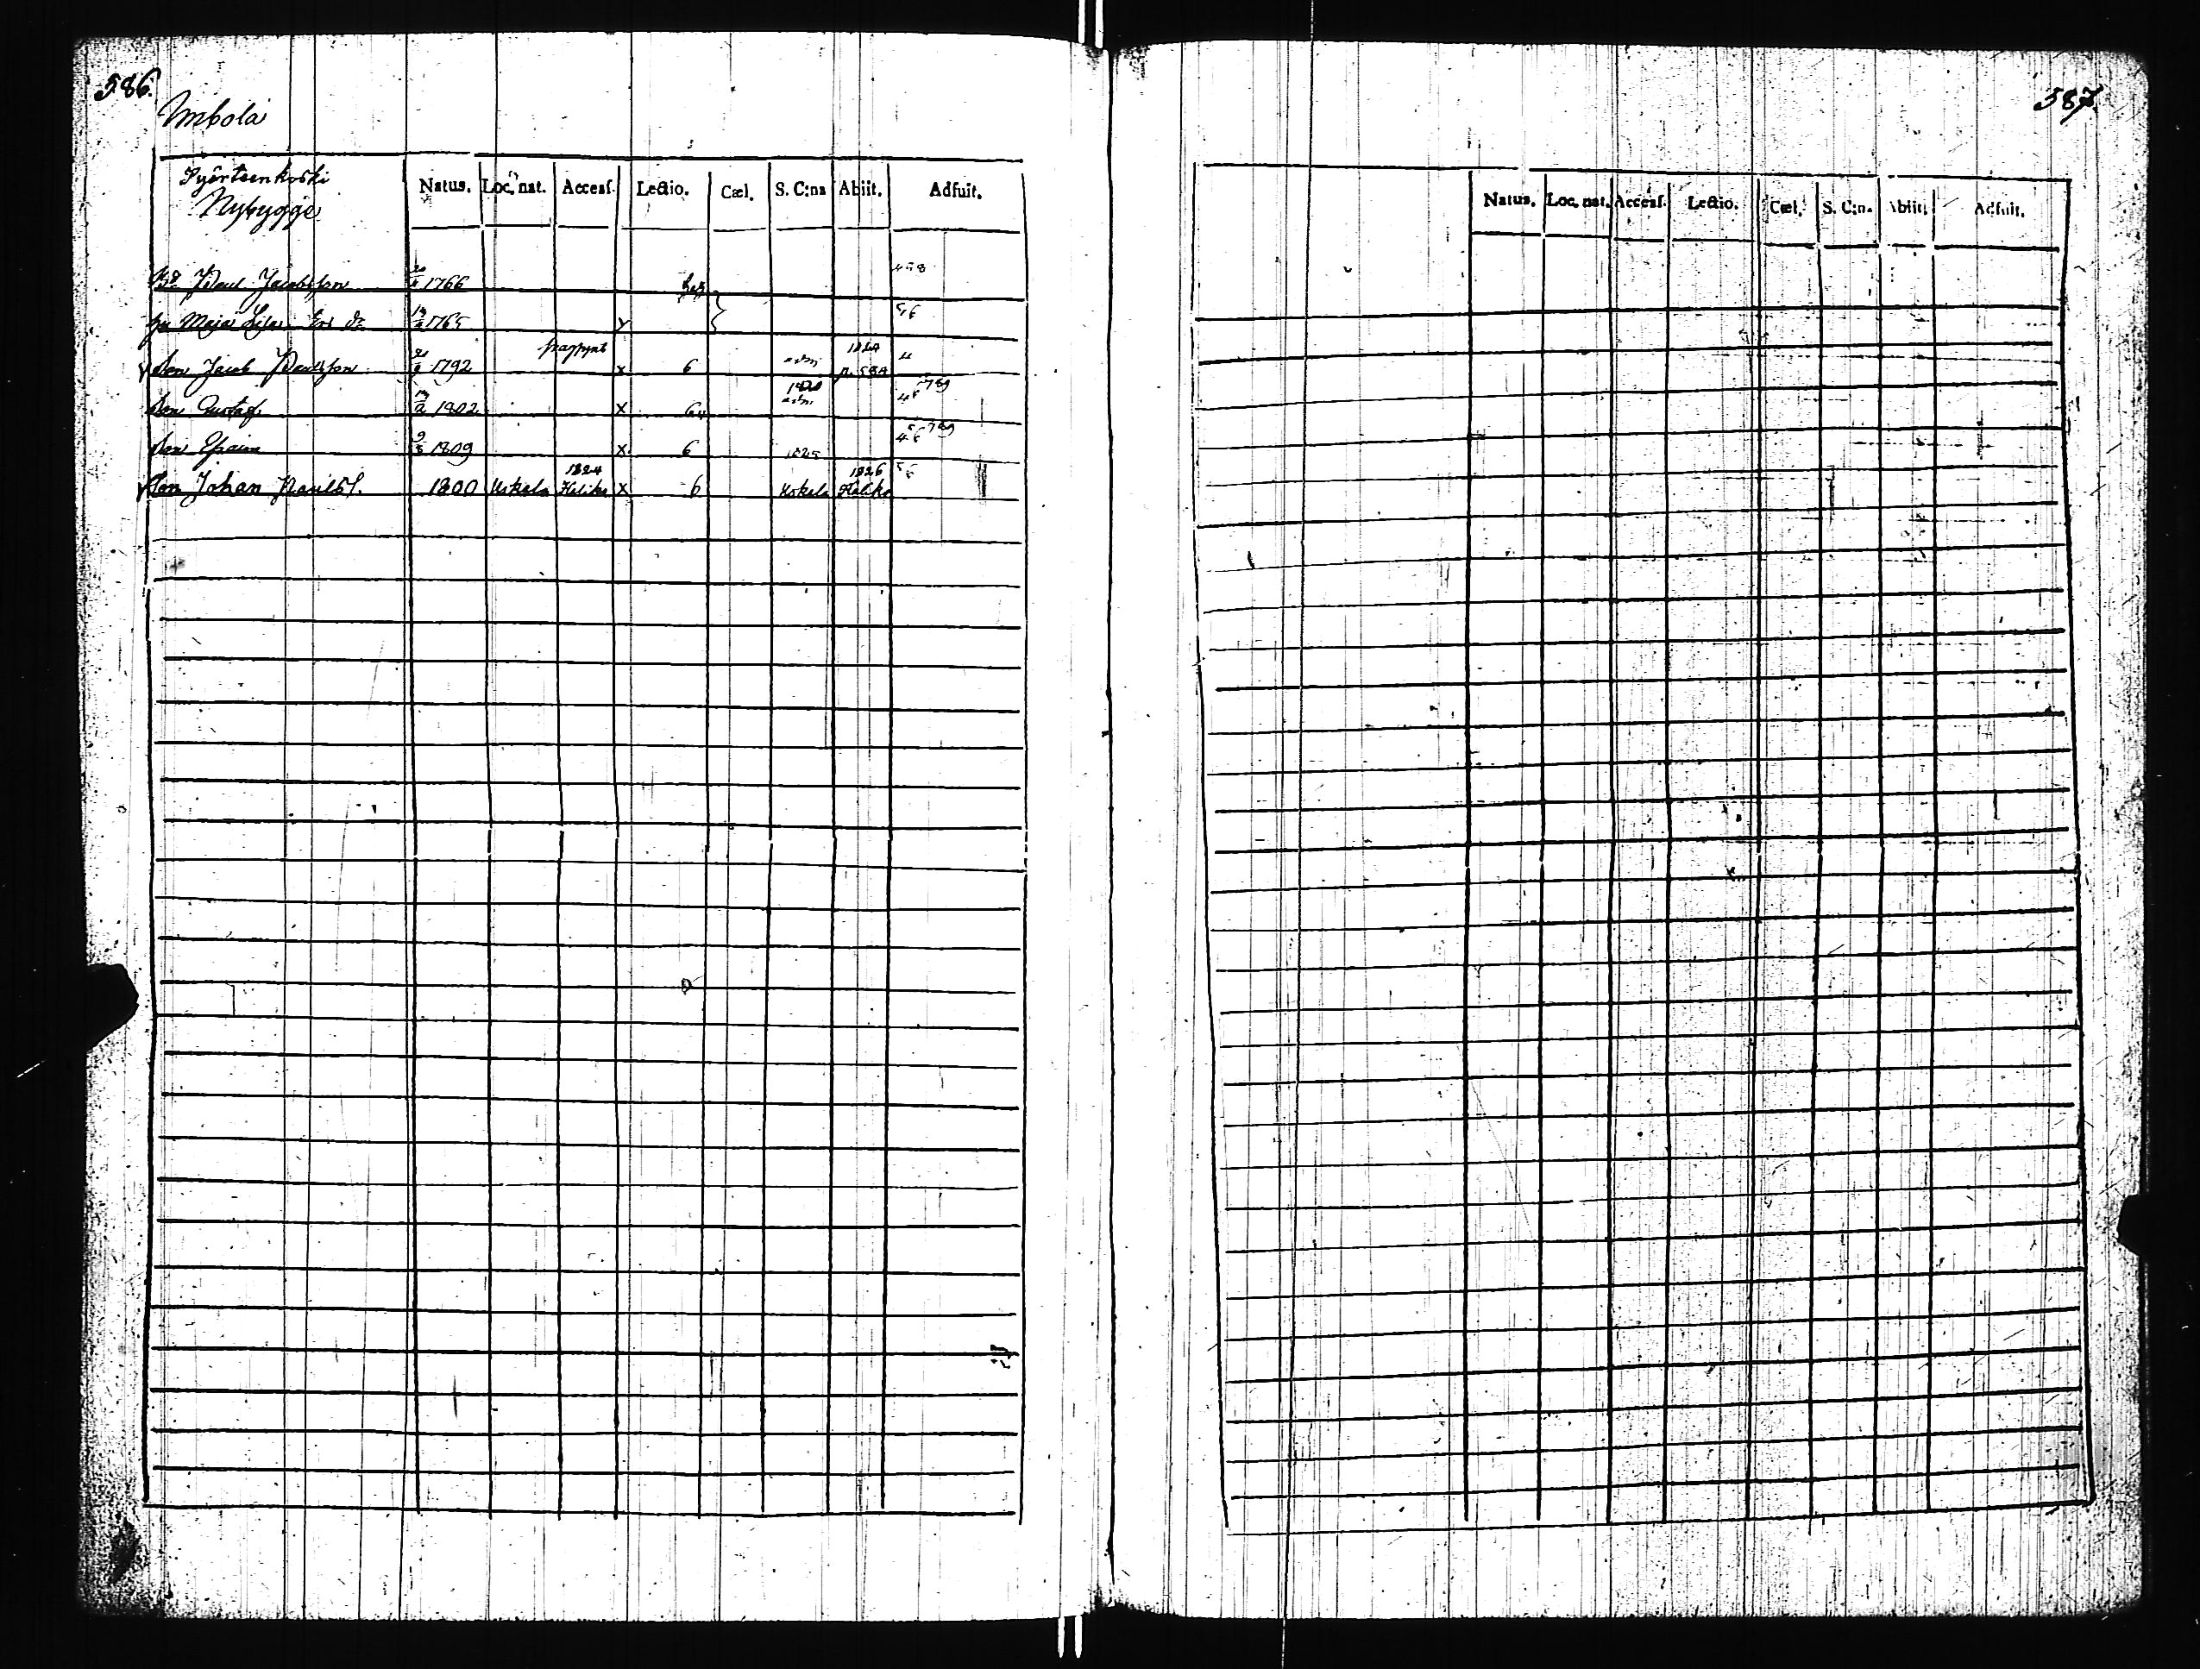 586.
Imbola
Pyörteenkoski
Nybygge
Natus. Loc. nat. Access. Lectio. Cæl. S. C:na Abiit. Adfuit.
Paul Jacobsson 1766 458
hu Maja Lisa Eri dr 1765 56
Son Jacob Paulsson 1792 x 6 adm 1824 p. 584 4
Son Gustaf 1802 x 6 1820 adm 45789
Son Efraim 9 1809 x 6 1825 456789
Son Johan Paulss. 1800 Uskela 1824 Haliko x 6 Uskela 1826 Haliko 56
587.
Natus. Loc. nat. Access. Lectio. Cæl. S. C:n. Abiit. Adfuit.